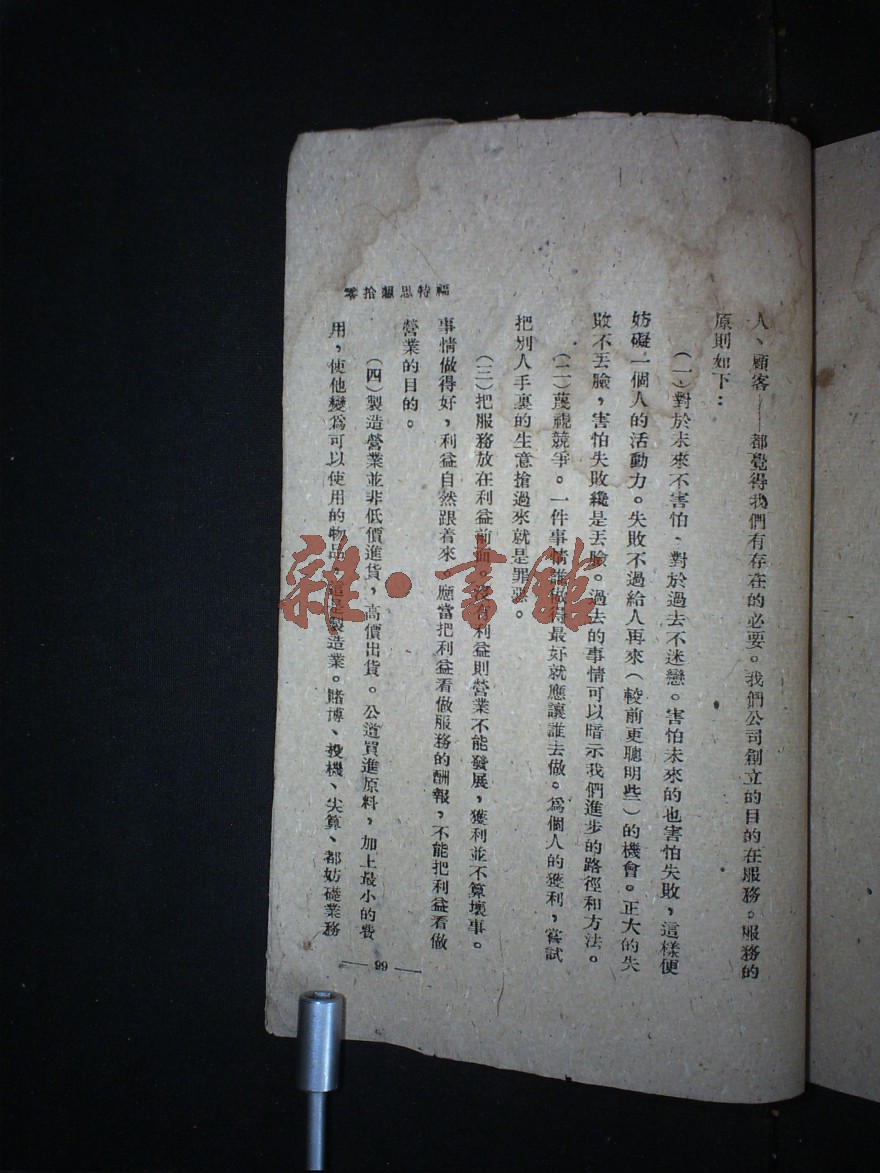 人、顧客——都覺得我們有存在的必要。我們公司創立的目的在服務。服務的
原則如下：
（一）對於未來不害怕，對於過去不迷戀。害怕未來的也害怕失敗，這樣便
妨礙一個人的活動力。失敗不過給人再來（較前更聰明些）的機會。正大的失
敗不丟臉，害怕失敗纔是丟臉。過去的事情可以暗示我們進步的路徑和方法。
（二）蔑視競爭。一件事情誰做得最好就應讓誰去做。爲個人的獲利，嘗試
把別人手裏的生意搶過來就是罪惡。
（三）把服務放在利益前面。沒有利益則營業不能發展，獲利並不算壞事。
事情做得好，利益自然跟着來。應當把利益看做服務的酬報，不能把利益看做
營業的目的。
（四）製造營業並非低價進貨，高價出貨。公道買進原料，加上最小的費
用，使他變爲可以使用的物品，這是製造業。賭博、投機、尖算、都妨礙業務
福特思想拾零
— 99 —
雜·書館